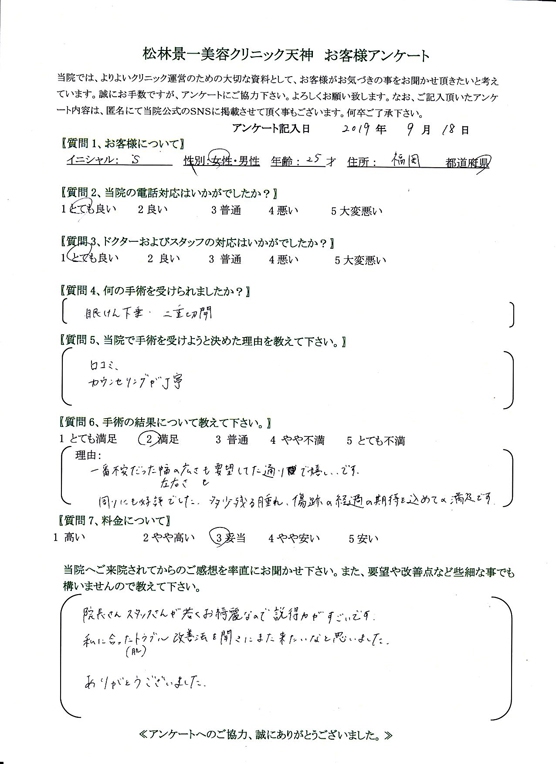 松林景一美容クリニック天神 お客様アンケート
当院では、よりよいクリニック運営のための大切な資料として、お客様がお気づきの事をお聞かせ頂きたいと考え
ています。誠にお手数ですが、アンケートにご協力下さい。よろしくお願い致します。なお、ご記入頂いたアンケ
ート内容は、匿名にて当院公式のSNSに掲載させて頂く事もございます。何卒ご了承下さい。
アンケート記入日 2019年 9月 18日
〖質問1、お客様について〗
イニシャル: S 性別:女性・男性 年齢:25才 住所: 福岡 都道府県
〖質問2、当院の電話対応はいかがでしたか?〗
1とても良い 2良い 3普通 4悪い 5大変悪い
〖質問3、ドクターおよびスタッフの対応はいかがでしたか?〗
1とても良い 2 良い 3 普通 4悪い 5大変悪い
〖質問4、何の手術を受けられましたか?〗
眼けん下垂・二重切開
〖質問5、当院で手術を受けようと決めた理由を教えて下さい。〗
口コミ、
カウンセリングが丁寧
〖質問6、手術の結果について教えて下さい。〗
1 とても満足 2 満足 3 普通 4 やや不満 5 とても不満
理由:
一番不安だった幅の広さも要望してた通りで嬉しいです。
左右さも
周りにも好評でした。多少残る腫れ、傷跡の経過の期待を込めての満足です。
〖質問7、料金について〗
1 高い 2 やや高い 3 妥当 4 やや安い 5 安い
当院へご来院されてからのご感想を率直にお聞かせ下さい。また、要望や改善点など些細な事でも
構いませんので教えて下さい。
院長さん スタッフさんが若くお綺麗なので説得力がすごいです。
私に合ったトラブル改善法を聞きにまた来たいなと思いました。
(肌)
ありがとうございました。
≪アンケートへのご協力、誠にありがとうございました。≫